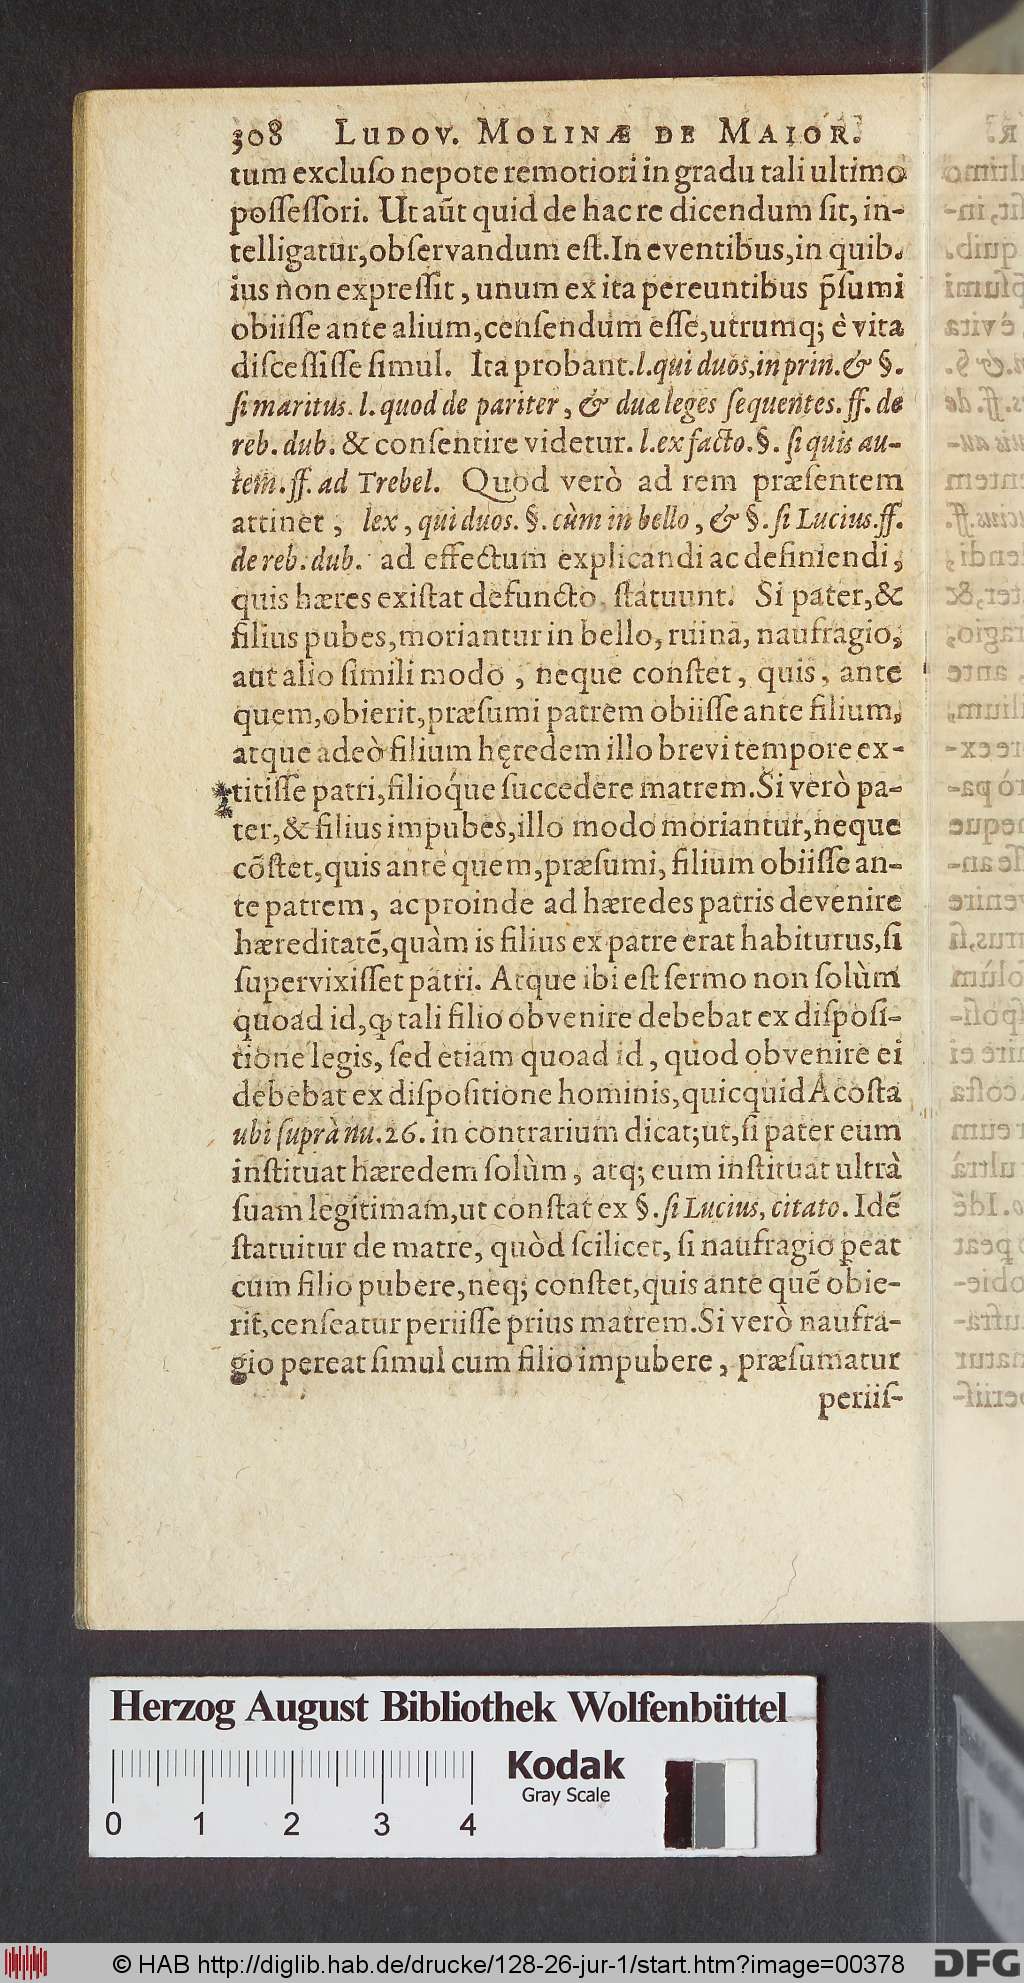 308 LUDOV. MOLINÆ DE MAIOR.
tum excluſo nepote remotiori in gradu tali ultimo
poſſeſſori. Ut aūt quid de hac re dicendum ſit, in-
telligatur, obſervandum eſt. In eventibus, in quib.
ius non expreſſit, unum ex ita pereuntibus p̄ſumi
obiiſſe ante alium, cenſendum eſſe, utrumq; è vita
diſceſſiſſe ſimul. Ita probant. l. qui duos, in prin. & §.
ſi maritus. l. quod de pariter, & duæ leges ſequentes. ff. de
reb. dub. & conſentire videtur. l. ex facto. §. ſi quis au-
tem. ff. ad Trebel. Quod verò ad rem præſentem
attinet, lex, qui duos. §. cùm in bello, & §. ſi Lucius. ff.
de reb. dub. ad effectum explicandi ac definiendi,
quis hæres exiſtat defuncto, ſtatuunt. Si pater, &
filius pubes, moriantur in bello, ruina, naufragio,
aut alio ſimili modo, neque conſtet, quis, ante
quem, obierit, præſumi patrem obiiſſe ante filium,
atque adeò filium hęredem illo brevi tempore ex-
titiſſe patri, filioq́ue ſuccedere matrem. Si verò pa-
ter, & filius impubes, illo modo moriantur, neque
cōſtet, quis ante quem, præſumi, filium obiiſſe an-
te patrem, ac proinde ad hæredes patris devenire
hæreditatē, quàm is filius ex patre erat habiturus, ſi
ſupervixiſſet patri. Atque ibi eſt ſermo non ſolùm
quoad id, ꝙ tali filio obvenire debebat ex diſpoſi-
tione legis, ſed etiam quoad id, quod obvenire ei
debebat ex diſpoſitione hominis, quicquid Acoſta
ubi ſuprà nu. 26. in contrarium dicat; ut, ſi pater eum
inſtituat hæredem ſolùm, atq; eum inſtituat ultrà
ſuam legitimam, ut conſtat ex §. ſi Lucius, citato. Idē
ſtatuitur de matre, quòd ſcilicet, ſi naufragio ꝑeat
cum filio pubere, neq; conſtet, quis ante quē obie-
rit, cenſeatur periiſſe prius matrem. Si verò naufra-
gio pereat ſimul cum filio impubere, præſumatur
periiſ-
Herzog August Bibliothek Wolfenbüttel
Kodak
Gray Scale
0 1 2 3 4
© HAB http://diglib.hab.de/drucke/128-26-jur-1/start.htm?image=00378
DFG